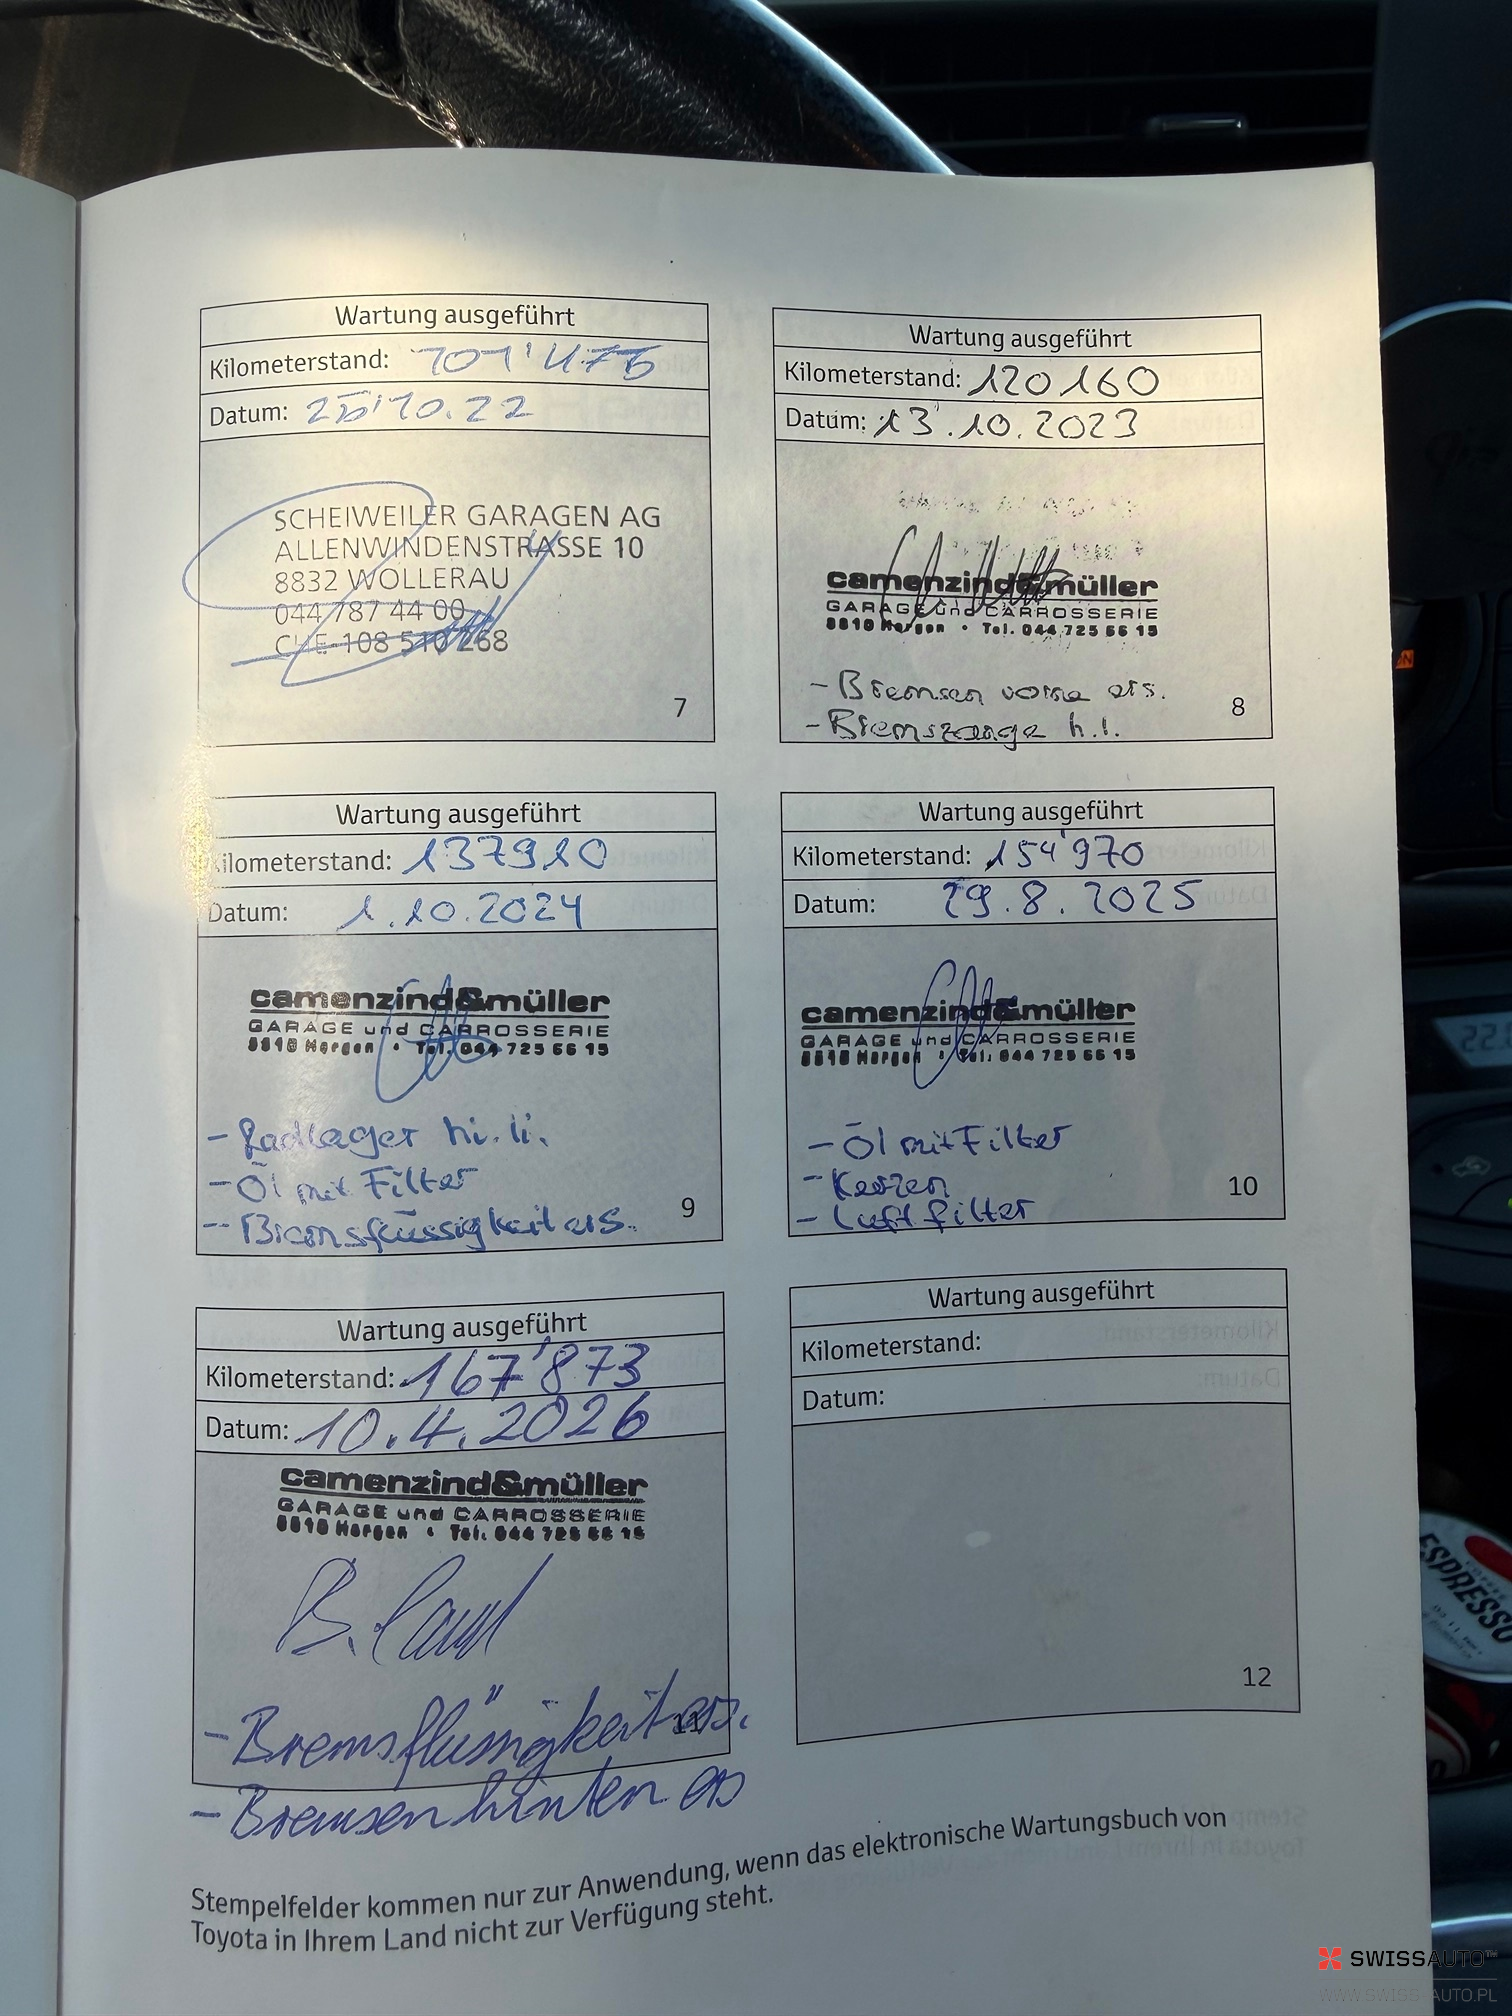 Wartung ausgeführt
Kilometerstand: 101'475
Datum: 25.10.22
SCHEIWEILER GARAGEN AG
ALLENWINDENSTRASSE 10
8832 WOLLERAU
044 787 44 00
CHE-108 510 268
7
Wartung ausgeführt
Kilometerstand: 120160
Datum: 13.10.2023
camenzind&müller
GARAGE und CARROSSERIE
8810 Horgen • Tel. 044 725 66 15
- Bremsen vorne ers.
- Bremszange h.l.
8
Wartung ausgeführt
Kilometerstand: 137910
Datum: 1.10.2024
camenzind&müller
GARAGE und CARROSSERIE
8810 Horgen • Tel. 044 725 66 15
- Radlager hi. li.
- Öl mit Filter
- Bremsflüssigkeit ers.
9
Wartung ausgeführt
Kilometerstand: 154'970
Datum: 29.8.2025
camenzind&müller
GARAGE und CARROSSERIE
8810 Horgen • Tel. 044 725 66 15
- Öl mit Filter
- Kerzen
- Luftfilter
10
Wartung ausgeführt
Kilometerstand: 167'873
Datum: 10.4.2026
camenzind&müller
GARAGE und CARROSSERIE
8810 Horgen • Tel. 044 725 66 15
- Bremsflüssigkeit ers.
11
- Bremsen hinten ers
Wartung ausgeführt
Kilometerstand:
Datum:
12
Stempelfelder kommen nur zur Anwendung, wenn das elektronische Wartungsbuch von
Toyota in Ihrem Land nicht zur Verfügung steht.
ESPRESSO
SWISSAUTO™
WWW.SWISS-AUTO.PL